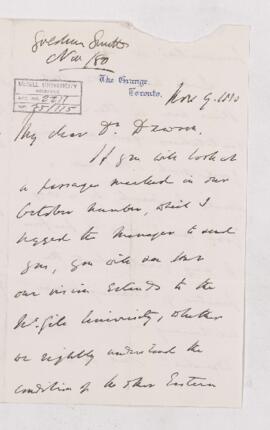 Goldwin Smith
Nov /80
McGILL UNIVERSITY
ARCHIVES
ACC. NO. 2211
The Grange.
Toronto.
Nov 9. 1880
My dear Dr Dawson,
If you will look at
a passage marked in our
October number, which I
begged the Manager to send
you, you will see how
our vision extends to the
McGill University, whether
we rightly understand the
condition of the other Eastern